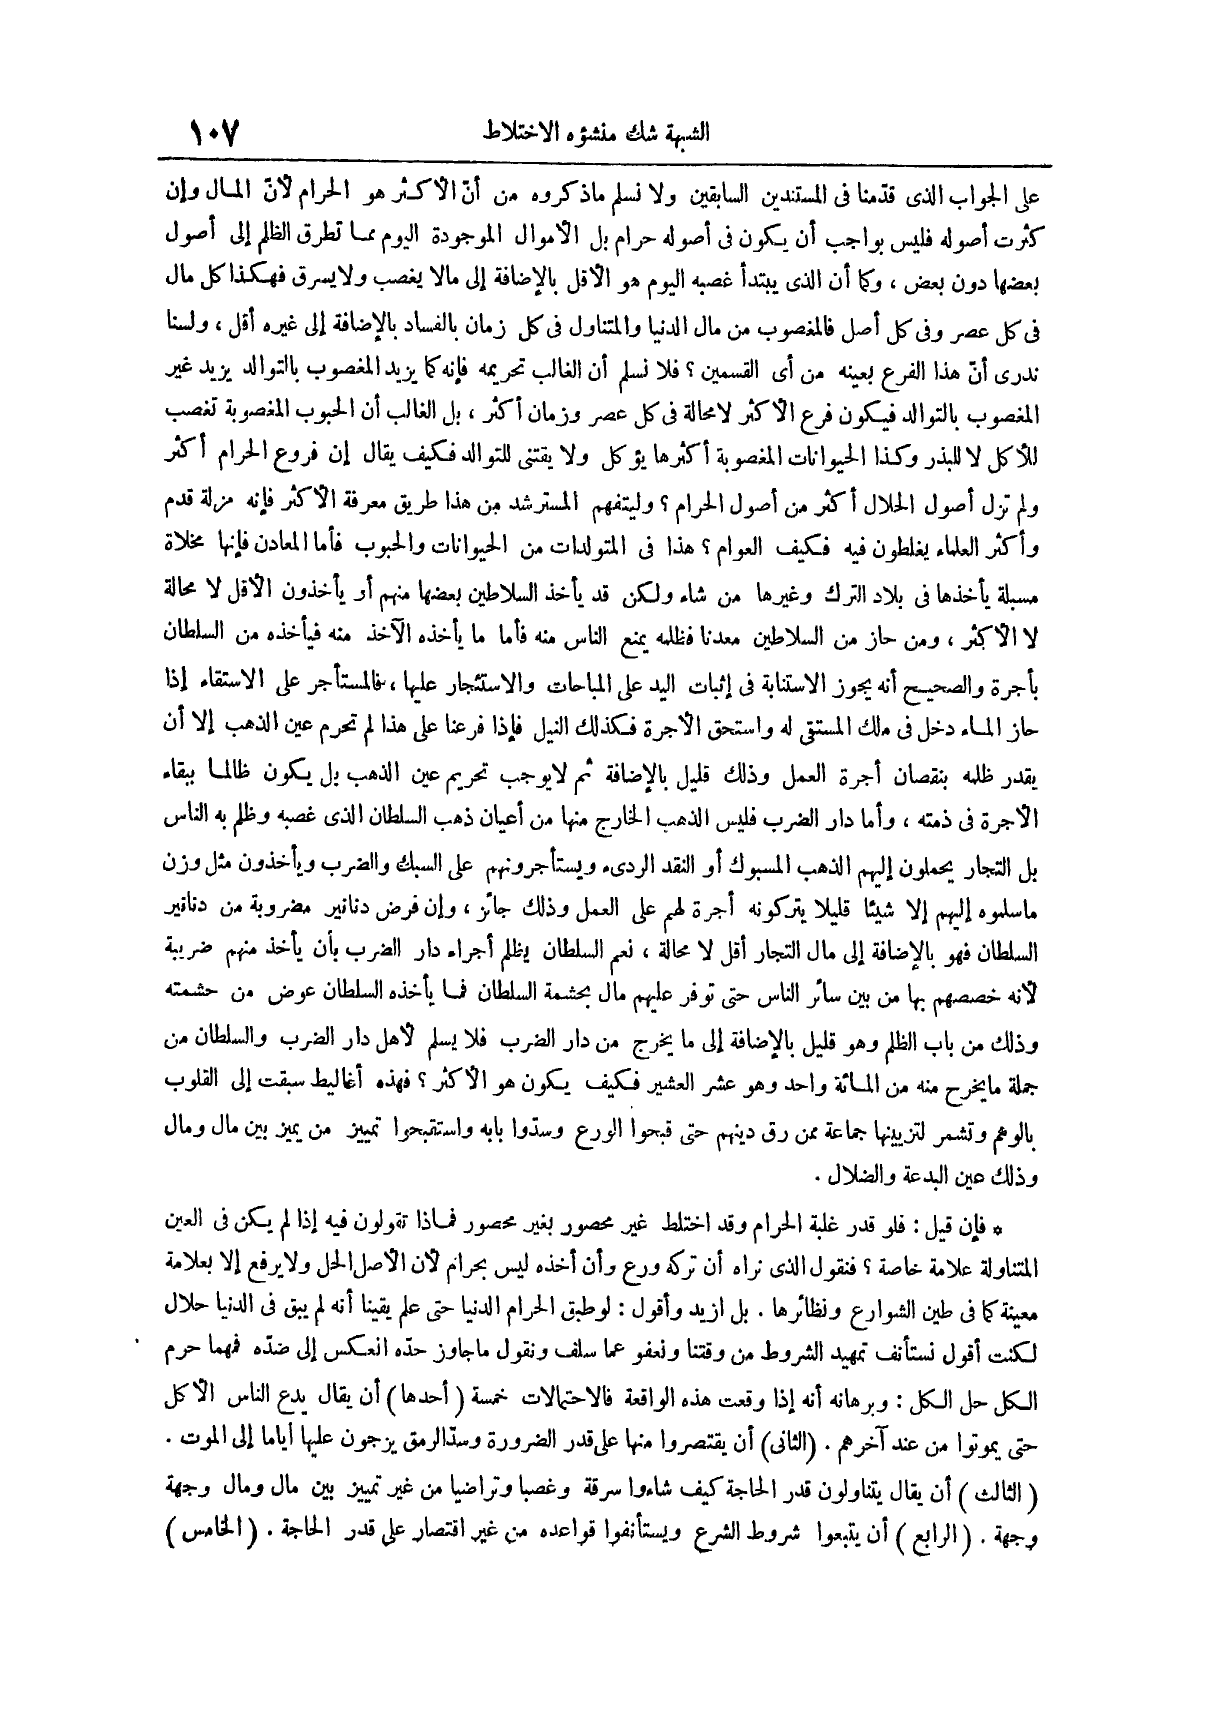 الشبهة شك منشؤه الاختلاط ١٠٧
على الجواب الذى قدّمنا فى المستندين السابقين ولا نسلم ماذكروه من أنّ الأكثر هو الحرام لأنّ المال وإن
كثرت أصوله فليس بواجب أن يكون فى أصوله حرام بل الأموال الموجودة اليوم مما تطرق الظلم إلى أصول
بعضها دون بعض ، وكما أن الذى يبتدأ غصبه اليوم هو الأقل بالإضافة إلى مالا يغصب ولا يسرق فهكذا كل مال
فى كل عصر وفى كل أصل فالمغصوب من مال الدنيا والمتناول فى كل زمان بالفساد بالإضافة إلى غيره أقل ، ولسنا
ندرى أنّ هذا الفرع بعينه من أى القسمين ؟ فلا نسلم أن الغالب تحريمه فإنه كما يزيد المغصوب بالتوالد يزيد غير
المغصوب بالتوالد فيكون فرع الأكثر لامحالة فى كل عصر وزمان أكثر ، بل الغالب أن الحبوب المغصوبة تغصب
للأكل لا للبذر وكذا الحيوانات المغصوبة أكثرها يؤكل ولا يقتنى للتوالد فكيف يقال إن فروع الحرام أكثر
ولم تزل أصول الحلال أكثر من أصول الحرام ؟ وليتفهم المسترشد من هذا طريق معرفة الأكثر فإنه مزلة قدم
وأكثر العلماء يغلطون فيه فكيف العوام ؟ هذا فى المتولدات من الحيوانات والحبوب فأما المعادن فإنها مخلاة
مسبلة يأخذها فى بلاد الترك وغيرها من شاء ولكن قد يأخذ السلاطين بعضها منهم أو يأخذون الأقل لا محالة
لا الأكثر ، ومن حاز من السلاطين معدنا فظلمه بمنع الناس منه فأما ما يأخذه الآخذ منه فيأخذه من السلطان
بأجرة والصحيح أنه يجوز الاستنابة فى إثبات اليد على المباحات والاستئجار عليها ، فالمستأجر على الاستقاء إذا
حاز الماء دخل فى ملك المستقى له واستحق الأجرة فكذلك النيل فإذا فرعنا على هذا لم تحرم عين الذهب إلا أن
يقدر ظلمه بنقصان أجرة العمل وذلك قليل بالإضافة ثم لايوجب تحريم عين الذهب بل يكون ظالما ببقاء
الأجرة فى ذمته ، وأما دار الضرب فليس الذهب الخارج منها من أعيان ذهب السلطان الذى غصبه وظلم به الناس
بل التجار يحملون إليهم الذهب المسبوك أو النقد الردىء ويستأجرونهم على السبك والضرب ويأخذون مثل وزن
ماسلموه إليهم إلا شيئا قليلا يتركونه أجرة لهم على العمل وذلك جائز ، وإن فرض دنانير مضروبة من دنانير
السلطان فهو بالإضافة إلى مال التجار أقل لا محالة ، نعم السلطان يظلم أجراء دار الضرب بأن يأخذ منهم ضريبة
لأنه خصصهم بها من بين سائر الناس حتى توفر عليهم مال بحشمة السلطان فما يأخذه السلطان عوض من حشمته
وذلك من باب الظلم وهو قليل بالإضافة إلى ما يخرج من دار الضرب فلا يسلم لأهل دار الضرب والسلطان من
جملة مايخرج منه من المائة واحد وهو عشر العشير فكيف يكون هو الأكثر ؟ فهذه أغاليط سبقت إلى القلوب
بالوهم وتشمر لتزيينها جماعة ممن رق دينهم حتى قبحوا الورع وسدّوا بابه واستقبحوا تمييز من يميز بين مال ومال
وذلك عين البدعة والضلال .
* فإن قيل : فلو قدر غلبة الحرام وقد اختلط غير محصور بغير محصور فماذا تقولون فيه إذا لم يكن فى العين
المتناولة علامة خاصة ؟ فنقول الذى نراه أن تركه ورع وأن أخذه ليس بحرام لأن الأصل الحل ولايرفع إلا بعلامة
معينة كما فى طين الشوارع ونظائرها . بل ازيد وأقول : لو طبق الحرام الدنيا حتى علم يقينا أنه لم يبق فى الدنيا حلال
لكنت أقول نستأنف تمهيد الشروط من وقتنا ونعفو عما سلف ونقول ماجاوز حدّه انعكس إلى ضدّه فمهما حرم
الكل حل الكل : وبرهانه أنه إذا وقعت هذه الواقعة فالاحتمالات خمسة ( أحدها ) أن يقال يدع الناس الأكل
حتى يموتوا من عند آخرهم . (الثانى) أن يقتصروا منها على قدر الضرورة وسدّ الرمق يزجون عليها أياما إلى الموت .
( الثالث ) أن يقال يتناولون قدر الحاجة كيف شاءوا سرقة وغصبا وتراضيا من غير تمييز بين مال ومال وجهة
وجهة . ( الرابع ) أن يتبعوا شروط الشرع ويستأنفوا قواعده من غير اقتصار على قدر الحاجة . ( الخامس )